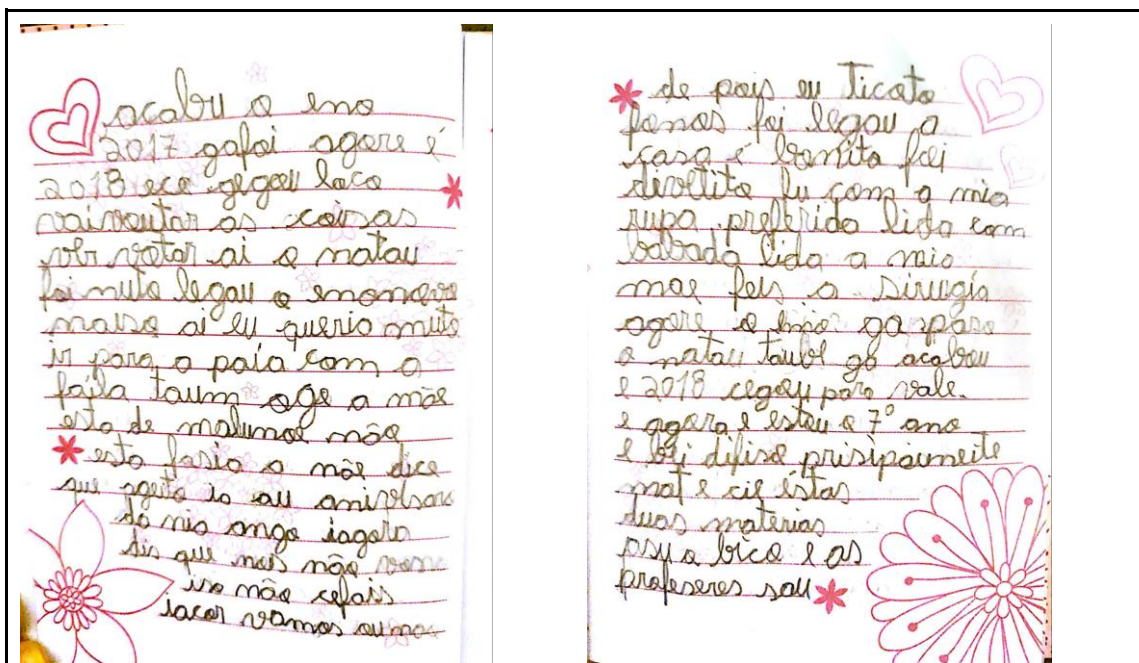 acabou o eno
2017 gafoi agore é
2018 ece gegou laco
vaivoutar as coisas
por votar ai o natau
foi muto legau o enonovo
maiso ai eu queria muito
ir para a paía com a
fajla taum oge a mãe
esta de malumoe mãe
esta fasio a mãe dice
que ageita ia au anivesaro
da mia amga iagora
dis que mas não vamo
iso não cefais
iacor vamos aumo
de pois eu Ticato
fomos foi legau a
casa é bonita foi
divertito fu com a mia
rupa preferida lida com
babado lida a maio
mae feis a sirugía
agore o eno ga paso
o natau taubē ga acabou
e 2018 cegou para vale.
e agora e estou o 7º ano
e bei difiso prisipaumeite
mat e cie éstas
duas materias
osu o bico e as
profeseres sou